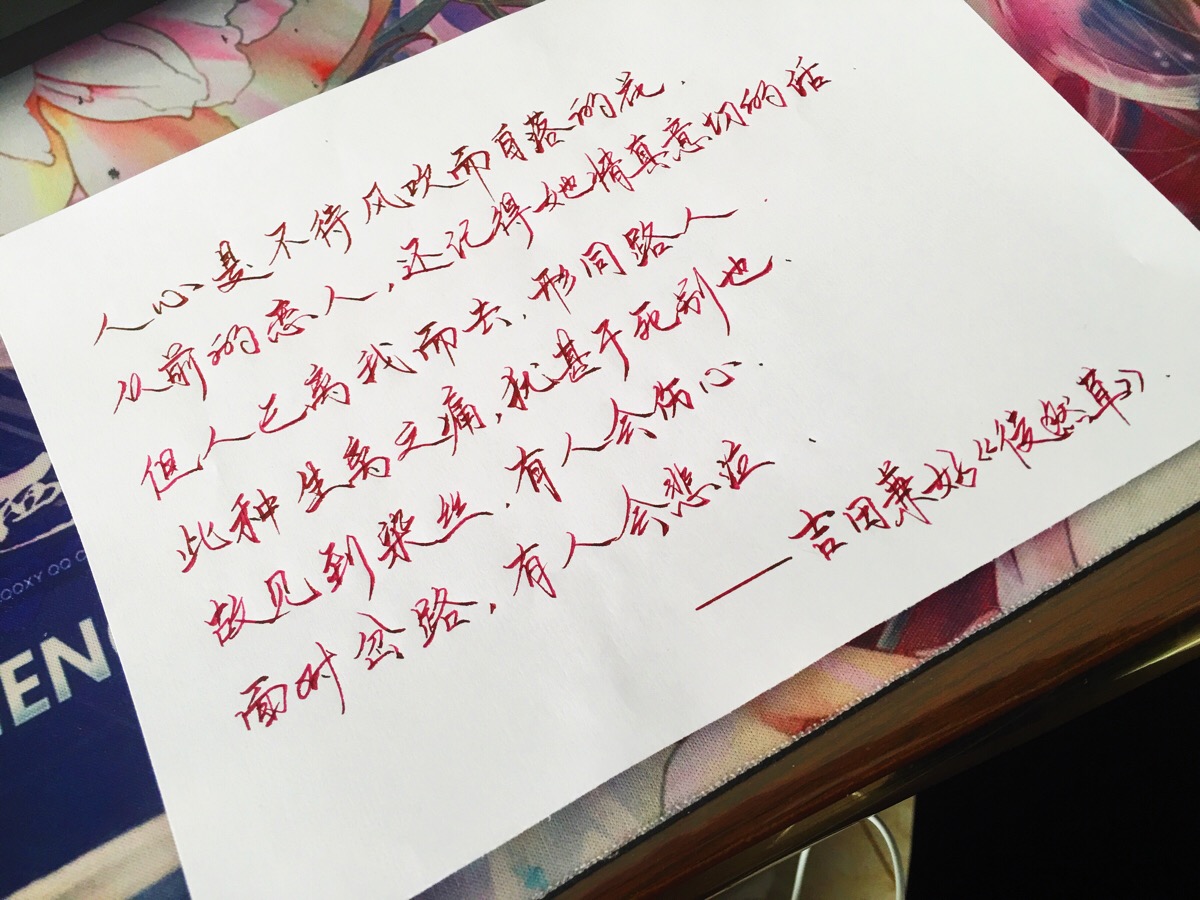 人心是不待风吹而自落的花.
从前的恋人,还记得她情真意切的话
但人已离我而去.形同路人
此种生离之痛,犹甚于死别也.
故见到染丝.有人会伤心.
面对岔路,有人会悲泣
——吉田兼好《徒然草》
OOXY QQ
ENG